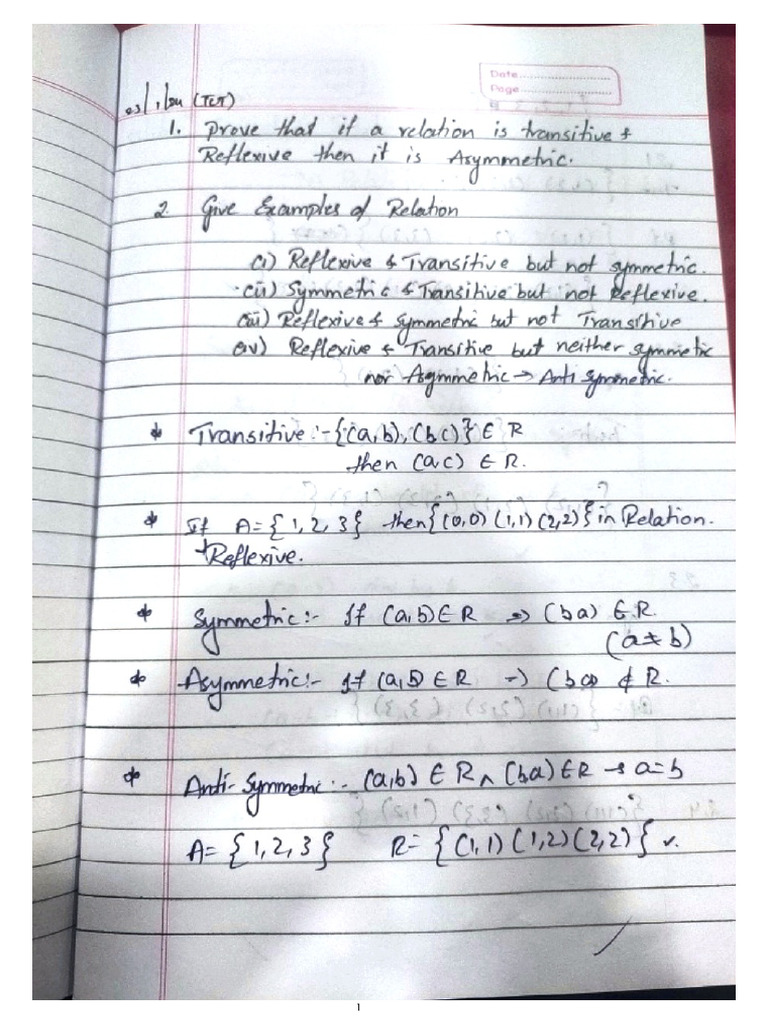 Date
Page
03/1/24 (TCT)
1. Prove that if a relation is transitive &
Reflexive then it is Asymmetric.
2. Give Examples of Relation
(i) Reflexive & Transitive but not symmetric.
(ii) Symmetric & Transitive but not Reflexive.
(iii) Reflexive & symmetric but not Transitive
(iv) Reflexive & Transitive but neither symmetric
nor Asymmetric → Anti symmetric.
* Transitive :- {(a,b), (bc)} ∈ R
then (a,c) ∈ R.
* If A = {1, 2, 3} then {(0,0) (1,1) (2,2)} in Relation.
Reflexive.
* Symmetric :- If (a,b) ∈ R → (ba) ∈ R.
(a ≠ b)
* Asymmetric :- If (a,b) ∈ R → (ba) ∉ R.
* Anti-Symmetric :- (a,b) ∈ R ∧ (ba) ∈ R → a=b
A = {1, 2, 3} R = {(1,1) (1,2) (2,2)} ✓.
1